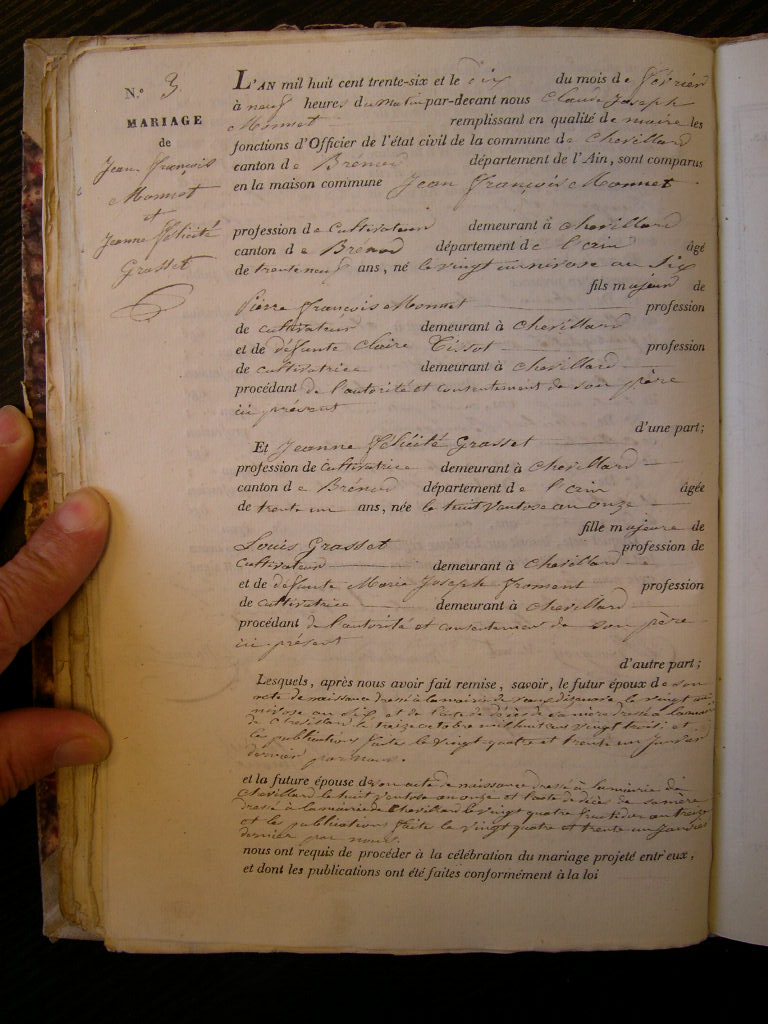 N.º 3
MARIAGE
de
Jean François
Monnet
et
Jeanne félicité
Grasset
L'AN mil huit cent trente-six et le dix du mois de février
à neuf heures du matin par-devant nous Claude Joseph
Monnet remplissant en qualité de maire les
fonctions d'Officier de l'état civil de la commune de Chevillard
canton de Brénod département de l'Ain, sont comparus
en la maison commune Jean François Monnet
profession de cultivateur demeurant à chevillard
canton de Brenod département de l'ain âgé
de trente neuf ans, né le vingt un nivose an Six
fils majeur de
Pierre françois Monnet profession
de cultivateur demeurant à chevillard
et de défunte Claire Tissot profession
de cultivatrice demeurant à chevillard
procédant de l'autorité et consentement de son père
ici présent
d'une part;
Et Jeanne félicité Grasset
profession de cultivatrice demeurant à chevillard
canton de Brénod département de l'ain âgée
de trente un ans, née le huit Ventose an onze
fille majeure de
Louis Grasset profession de
cultivateur demeurant à chevillard
et de défunte Marie Joseph froment profession
de cultivatrice demeurant à chevillard
procédant de l'autorité et consentement de son père
ici présent
d'autre part;
Lesquels, après nous avoir fait remise, savoir, le futur époux de son
acte de naissance dressé à la mairie de le vingt un
nivose an Six et de l'acte de décès de sa mère dressé à la mairie
de chevillard le treize octobre mil huit cent vingt huit et
les publications faites les vingt quatre et trente un janvier
dernier par nous.
et la future épouse de son acte de naissance dressé à la mairie de
chevillard le huit ventose an onze et l'acte de décès de sa mère
dressé à la mairie de chevillard le vingt quatre fructidor an treize
et les publications faite les vingt quatre et trente un janvier
dernier par nous.
nous ont requis de procéder à la célébration du mariage projeté entr'eux,
et dont les publications ont été faites conformément à la loi